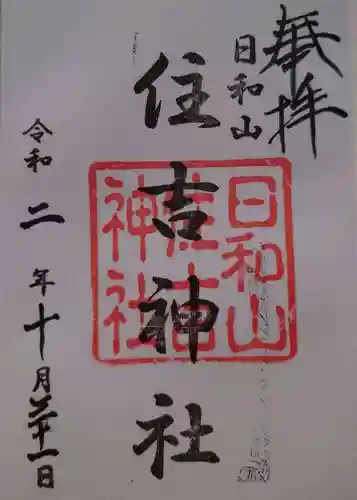 奉拝
日和山
住吉神社
日和山
住吉
神社
令和二年十月三十一日